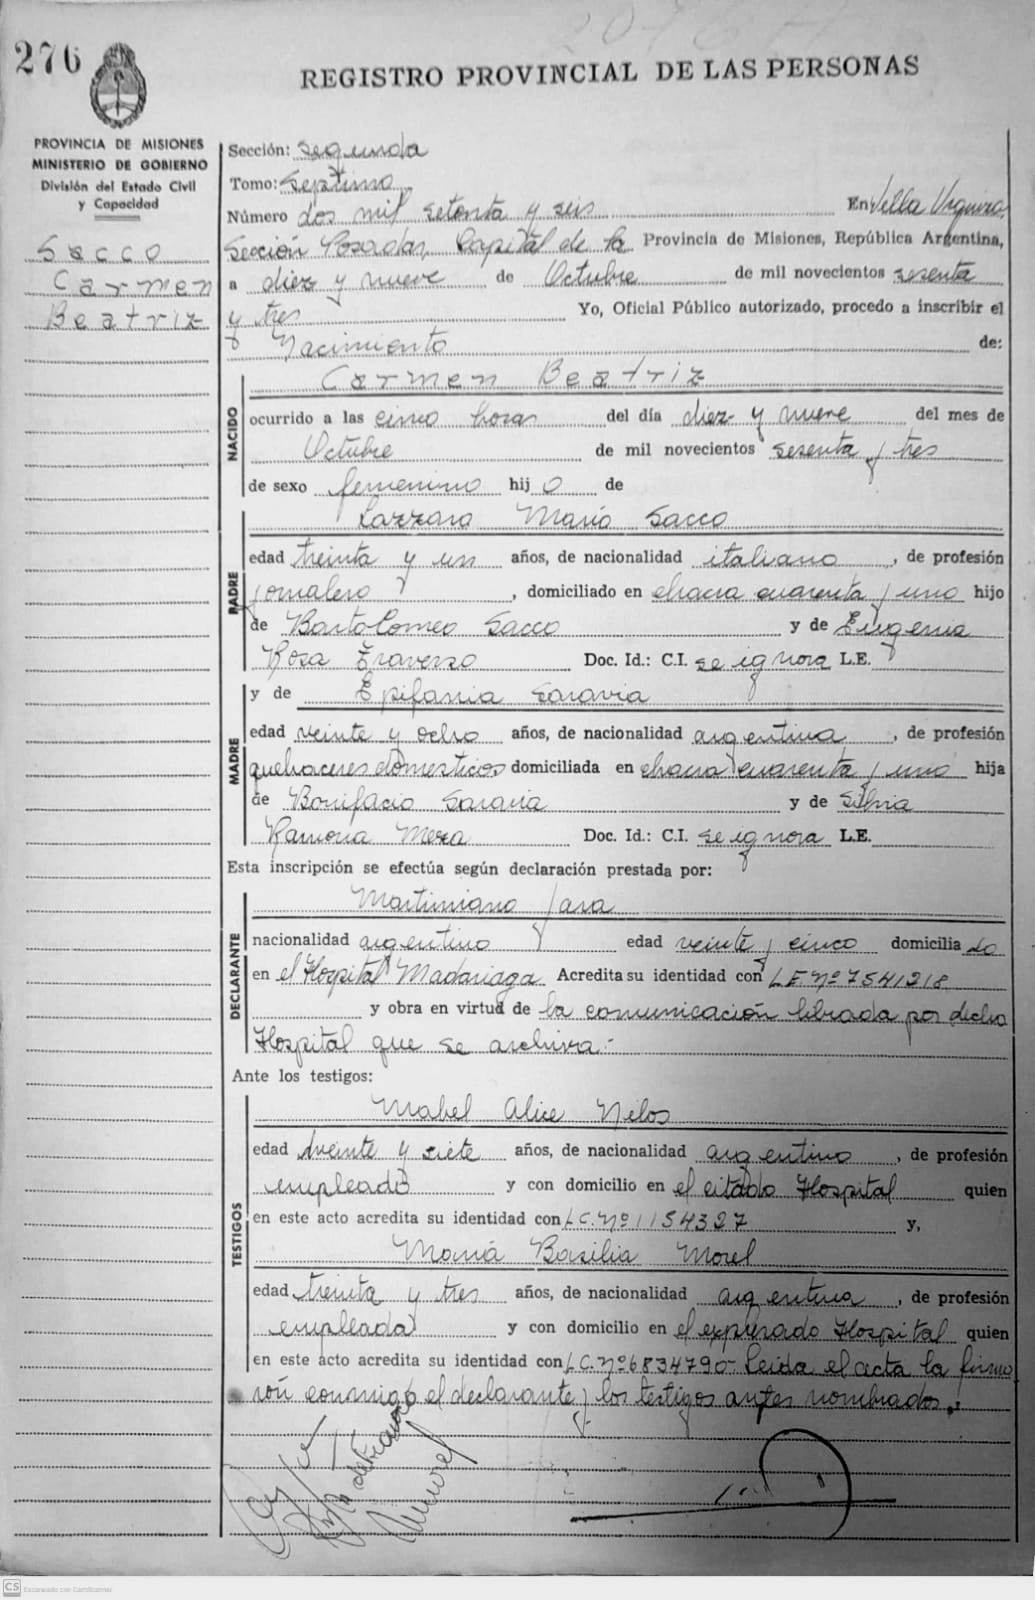 276
REGISTRO PROVINCIAL DE LAS PERSONAS
PROVINCIA DE MISIONES
MINISTERIO DE GOBIERNO
División del Estado Civil
y Capacidad
Sacco
Carmen
Beatriz
Sección: Segunda
Tomo: Septimo
Número dos mil setenta y seis En Villa Urquiza,
Sección Posadas, Capital de la Provincia de Misiones, República Argentina,
a diez y nueve de Octubre de mil novecientos sesenta
y tres Yo, Oficial Público autorizado, procedo a inscribir el
Nacimiento de:
NACIDO
Carmen Beatriz
ocurrido a las cinco horas del día diez y nueve del mes de
Octubre de mil novecientos sesenta y tres
de sexo femenino hij o de
PADRE
Lazzaro Mario Sacco
edad treinta y un años, de nacionalidad italiano, de profesión
jornalero, domiciliado en chacra cuarenta y uno hijo
de Bartolomeo Sacco y de Eugenia
Rosa Traverso Doc. Id.: C.I. se ignora L.E.
MADRE
y de Epifania Saravia
edad veinte y ocho años, de nacionalidad argentina, de profesión
quehaceres domesticos domiciliada en chacra cuarenta y uno hija
de Bonifacio Saravia y de Silvia
Ramona Meza Doc. Id.: C.I. se ignora L.E.
Esta inscripción se efectúa según declaración prestada por:
DECLARANTE
Martimiano Jara
nacionalidad argentino edad veinte y cinco domicilia do
en el Hospital Madariaga. Acredita su identidad con L.E. Nº 7541218
y obra en virtud de la comunicación librada por dicho
Hospital que se archiva.-
Ante los testigos:
TESTIGOS
Mabel Alice
edad veinte y siete años, de nacionalidad argentino, de profesión
empleado y con domicilio en el citado Hospital quien
en este acto acredita su identidad con L.C. Nº 1154327 y,
María Basilia Morel
edad treinta y tres años, de nacionalidad argentina, de profesión
empleada y con domicilio en el expresado Hospital quien
en este acto acredita su identidad con L.C. Nº 6834790- Leida el acta la firma
ron conmigo el declarante y los testigos antes nombrados.-
CS Escaneado con CamScanner